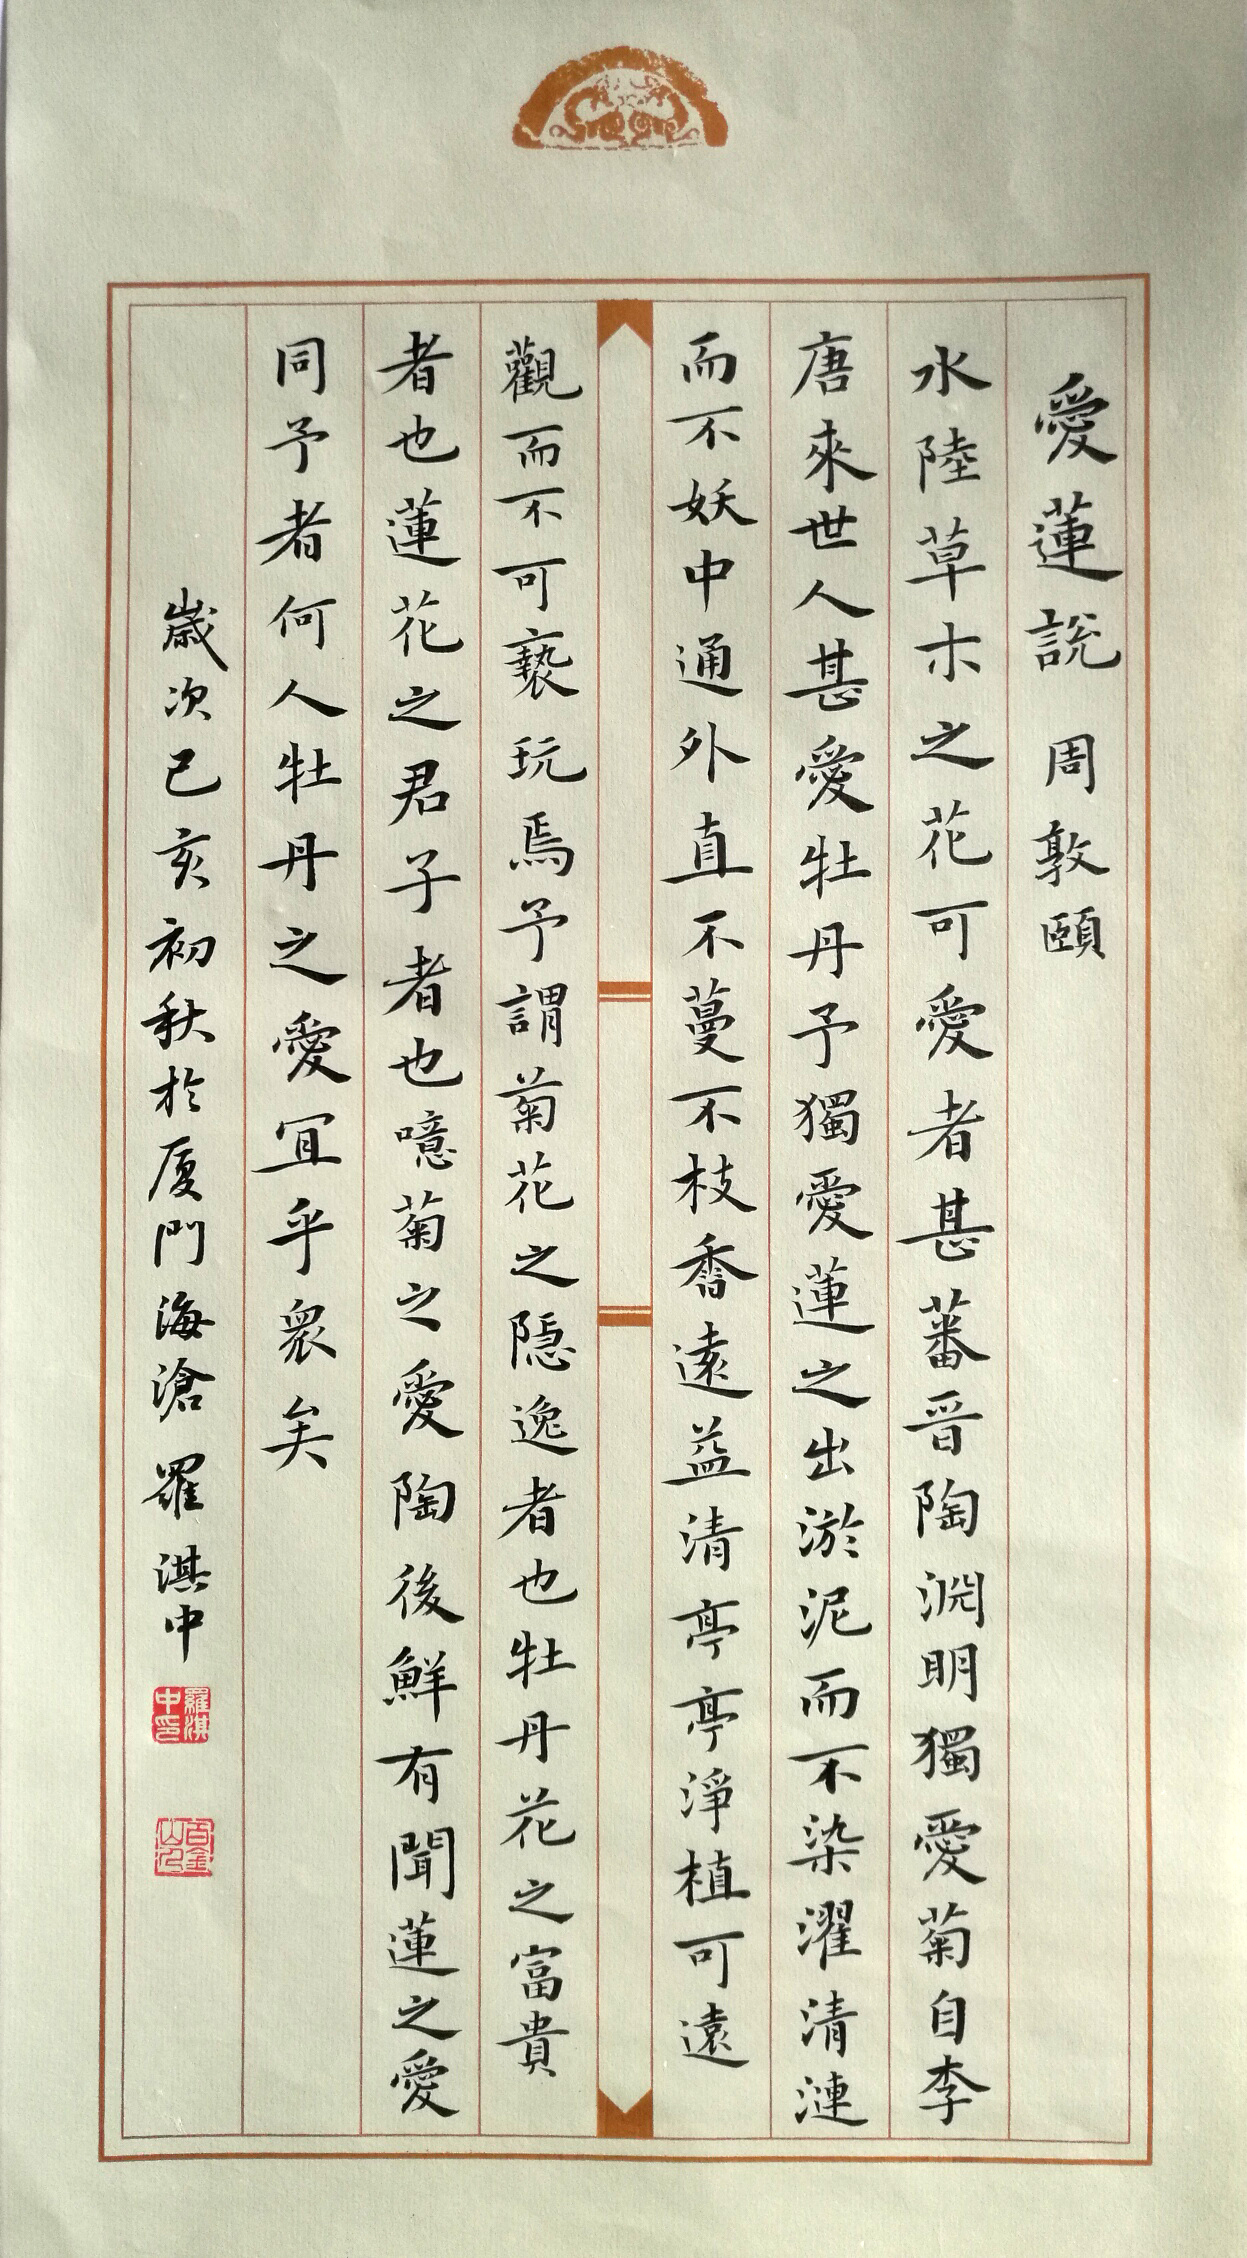 愛蓮說 周敦頤
水陸草木之花可愛者甚蕃晉陶淵明獨愛菊自李
唐來世人甚愛牡丹予獨愛蓮之出淤泥而不染濯清漣
而不妖中通外直不蔓不枝香遠益清亭亭淨植可遠
觀而不可褻玩焉予謂菊花之隱逸者也牡丹花之富貴
者也蓮花之君子者也噫菊之愛陶後鮮有聞蓮之愛
同予者何人牡丹之愛宜乎衆矣
歲次己亥初秋於厦門海滄 羅淇中
羅淇中印